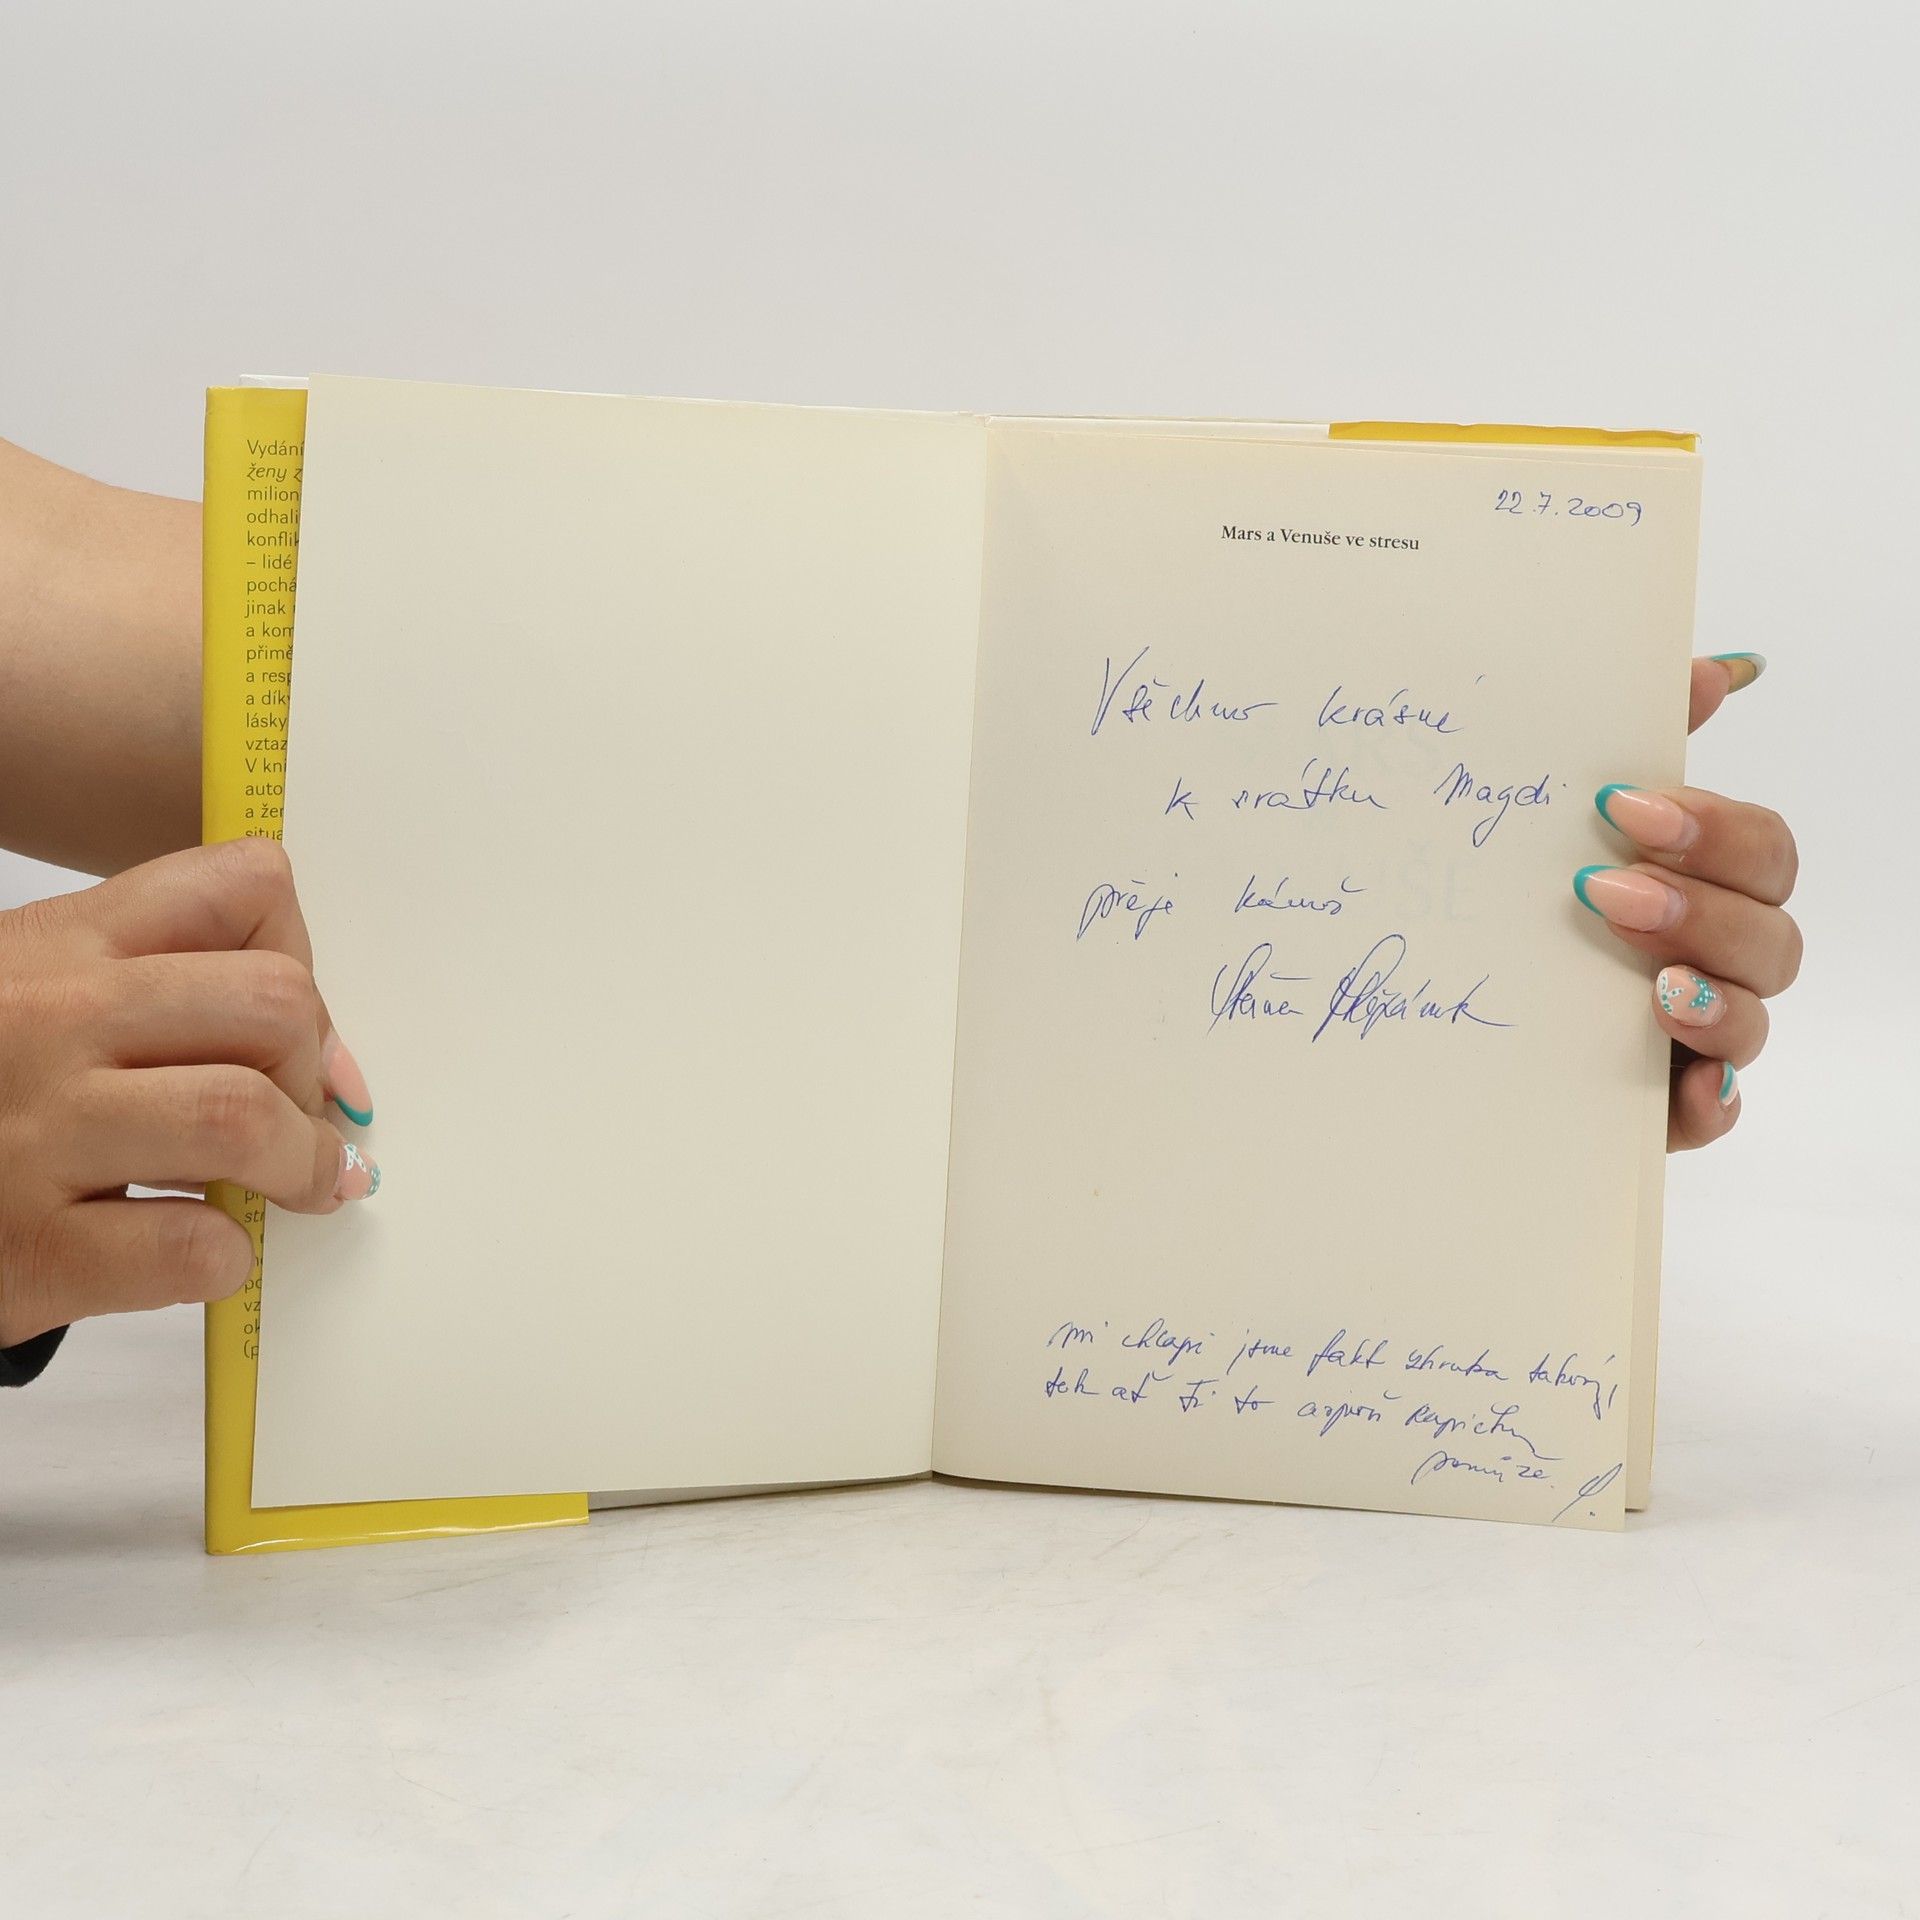 Vydání
ženy z
milion
odhali
konflik
– lidé
pochá
jinak
a kom
přimě
a resp
a dík
lásky
vztaz
V kni
auto
a žen
situa
str
po
vz
ok
(p
22.7.2009
Mars a Venuše ve stresu
Všechno krásné
k svátku Magdi
přeje kámoš
Štěpánek
my chlapi jsme fakt zhruba takový,
tak ať Ti to aspoň kapičku
pomůže.